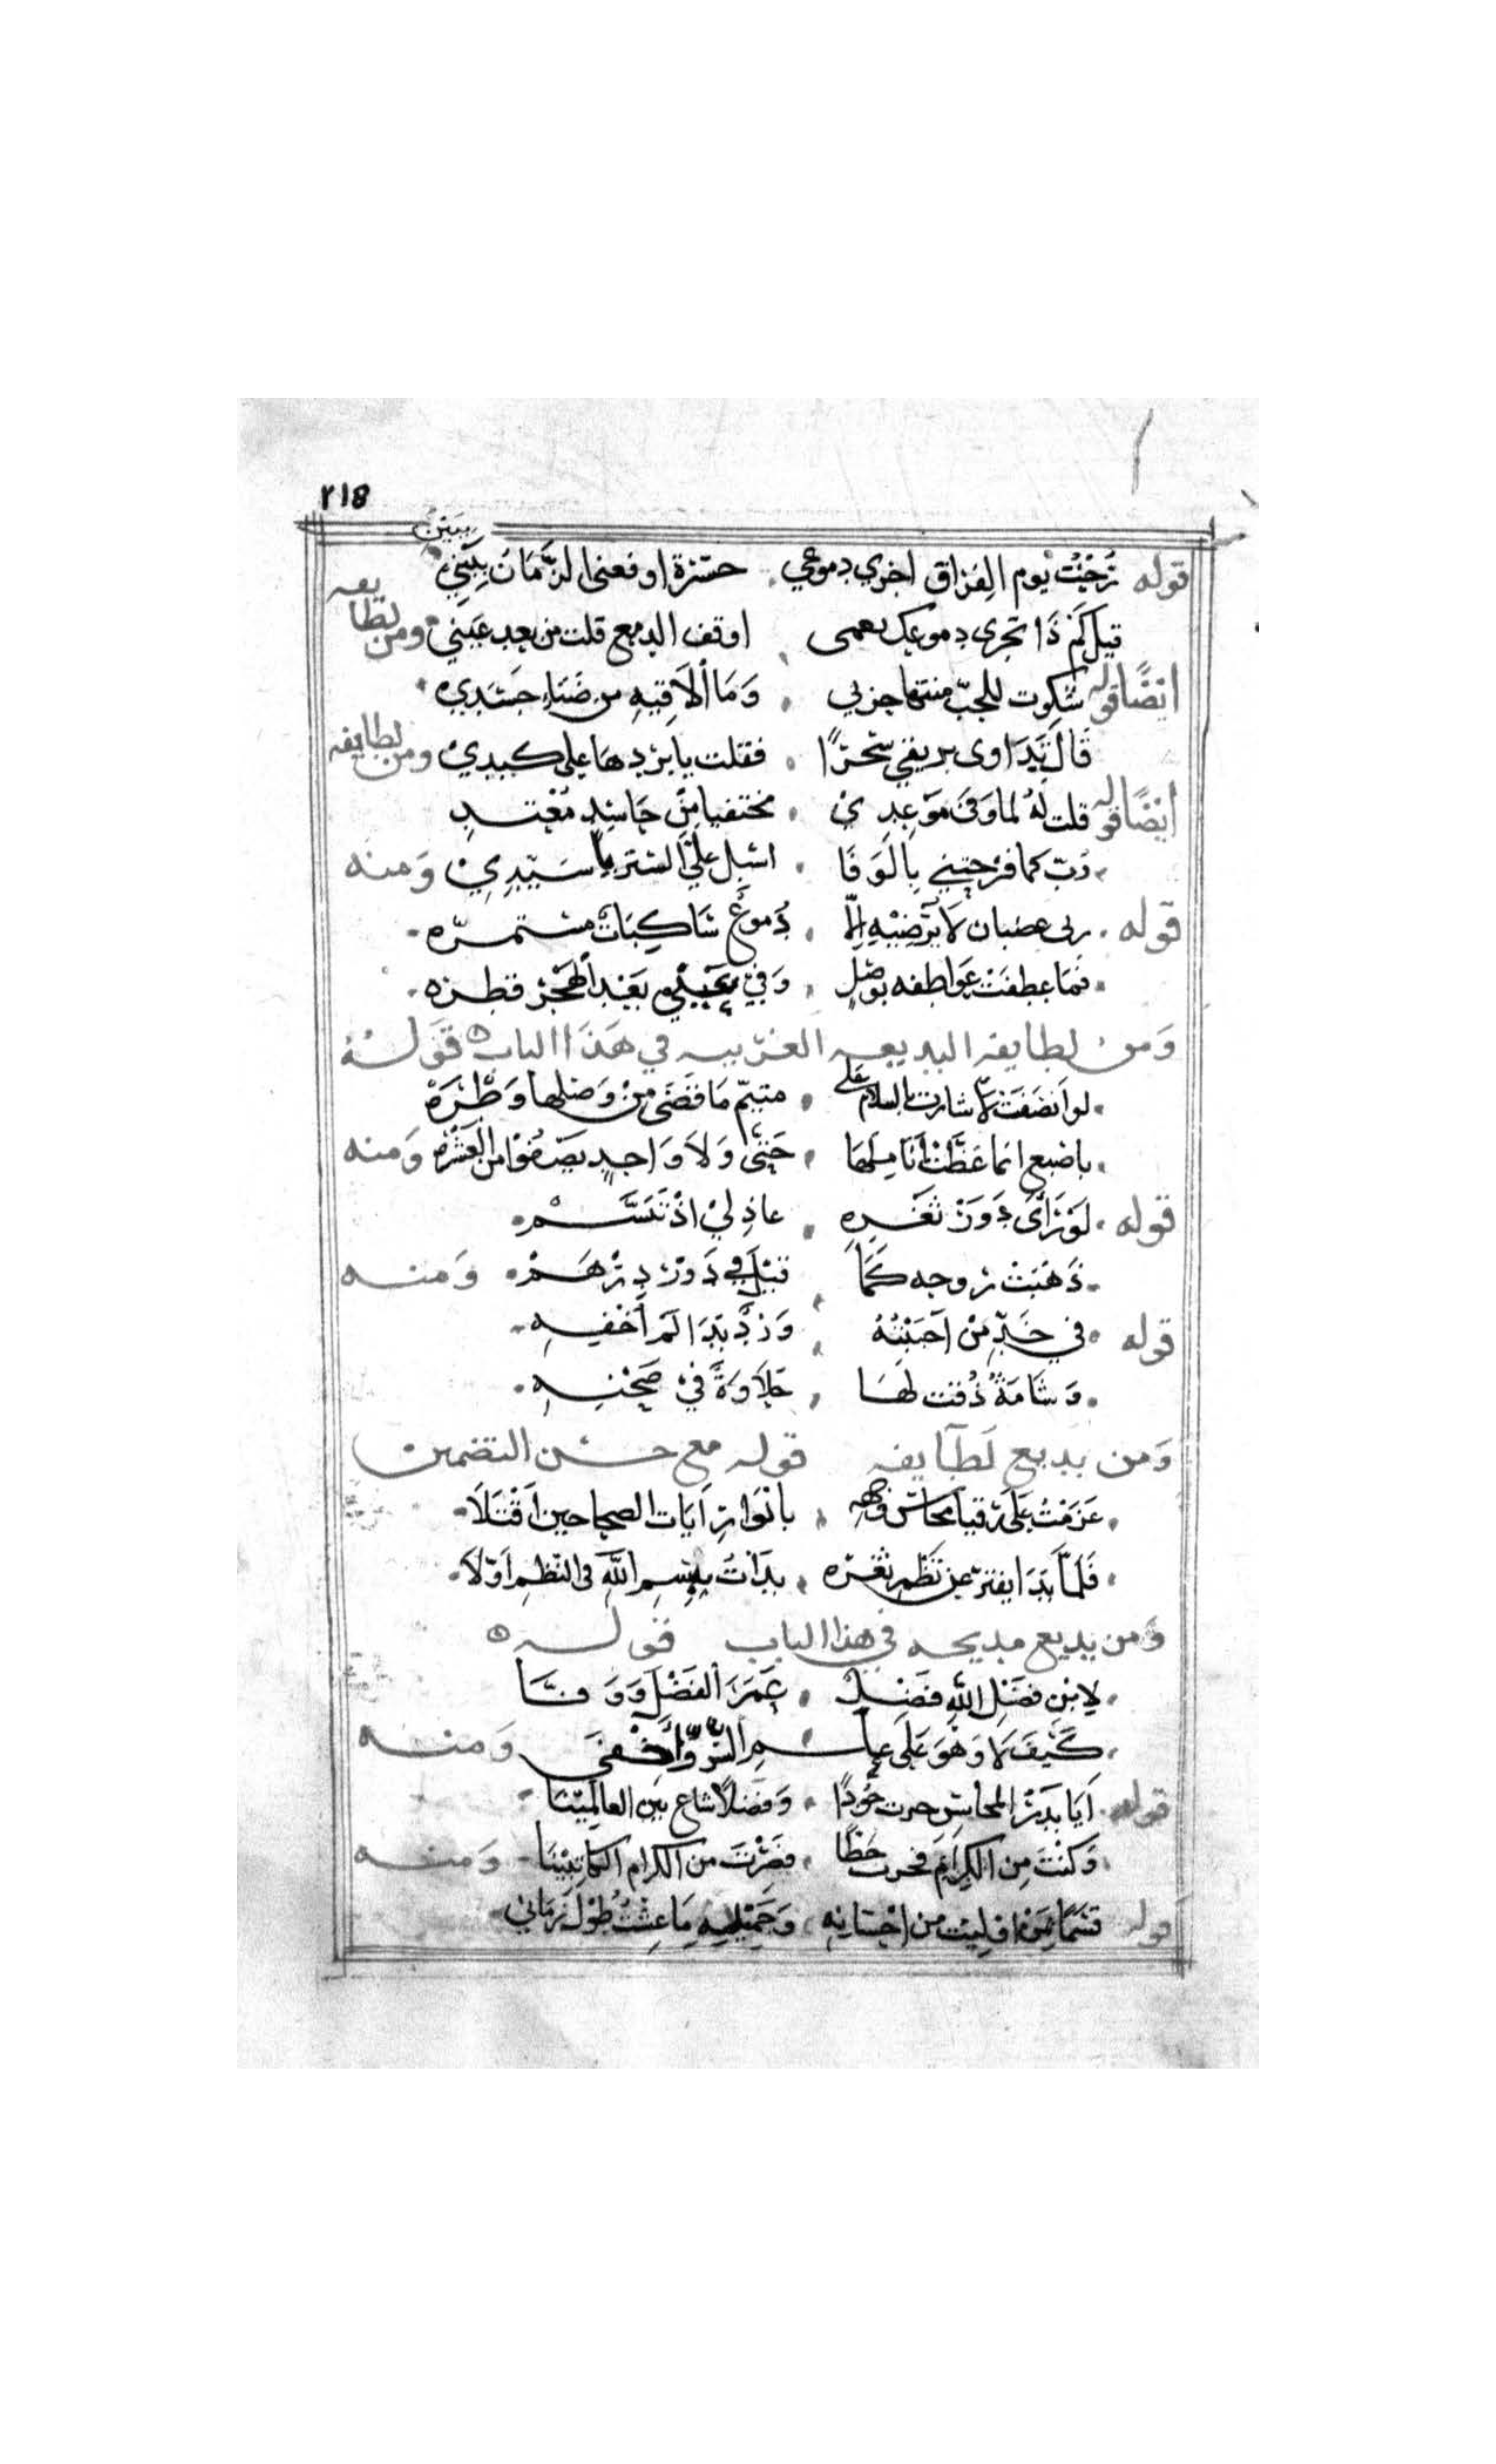 ٢١٨
ببين
قوله رحت يوم الفراق اجري دموعي حسرة اوقعني الزمان ببيني
قيل كم ذا تجرى دموعك تعمى اوقف الدمع قلت من بعد عيني ومن لطايفه
ايضًا قوله شكوت للحب منتها حزني وَمَا ألَاقِيهِ من ضَنَاءِ جسَدِي
قَال تَدَاوى بريقي سحرًا فقلت يا بَرْدهَا على كبدي ومن لطايفه
ايضًا قوله قلت لهُ لما وَفى مَوْعِدي مختفيا مِنْ حَاسِدٍ مُعْتدِ
رَبّ كما فرحتني بِالوَفَا اسبل عليّ الستر يا سَيّدِي وَمنه
قوله ربى غضبان لَا يُرضِيْهِ إلّا دُموعٌ سَاكِبَاتٌ مستمرّه
فمَا عطفَتْ عَواطفه بوصْلٍ وَفي عَيْني بَعْد الهَجْر قطره
وَمن لطايفه البديعه الغريبه في هَذَا الباب قَوله
لو انصَفَتْ لاشارت بالسلام على متيّم مَا قضَى مِنْ وَصْلها وَطَرَهْ
باصْبع انما عَظّت أنَامِلهَا حَتى وَلَا وَاحِدٍ يَصْفُوْا من العَشَرْه وَمنه
قوله لَوْ رَأى دَوْرَ ثَغْرِهِ عاذلِيْ اذْ تَبَسَّمْ
ذَهَبَتْ رُوحه كَمَا قيْلَ في دَوْر دِرْهَمْ وَمنه
قوله في خَدِّ مَنْ أحبَبْتُهُ وَرْدٌ بَدَا لَمْ أخْفِهِ
وَشَامَةٌ ذُقت لهَا حَلَاوَةً فيْ صَحْنِهِ
وَمن بديع لَطَايفه قوله مع حسْن التضمين
عَزمْتُ عَلى رقيا محاسن وجهه بانْوَارِ آيَات الضحا حين اَقْبَلَا
فَلمّا بَدَا يفترّ عن نَظْمِ ثغْرِه بدَاتُ بِبسمِ اللهِ فى النظمِ اوّلَا
وَمن بديع مديحه في هذا الباب قوله
لِابنِ فضْلِ اللهِ فضْلٌ غَمَرَ الفَضْلَ وَوَفَّا
كَيْفَ لَا وَهْوَ عَلى عَالِمِ السّرّ وَأخْفَى وَمنه
قوله اَيَا بَدْرَ المحاسِنِ حزت جُودًا وَفضْلًا شاع بين العالميْنَا
وَكنْتَ مِن الكِرَامِ فحزت خطًا فصِرْتَ من الكرام الكاتبيْنَا وَمنه
قوله قسَمًا بِمَا اوليت من احْسَانِهِ وَجَميْلِهِ مَا عِشْتُ طُوْلَ زَمانيْ